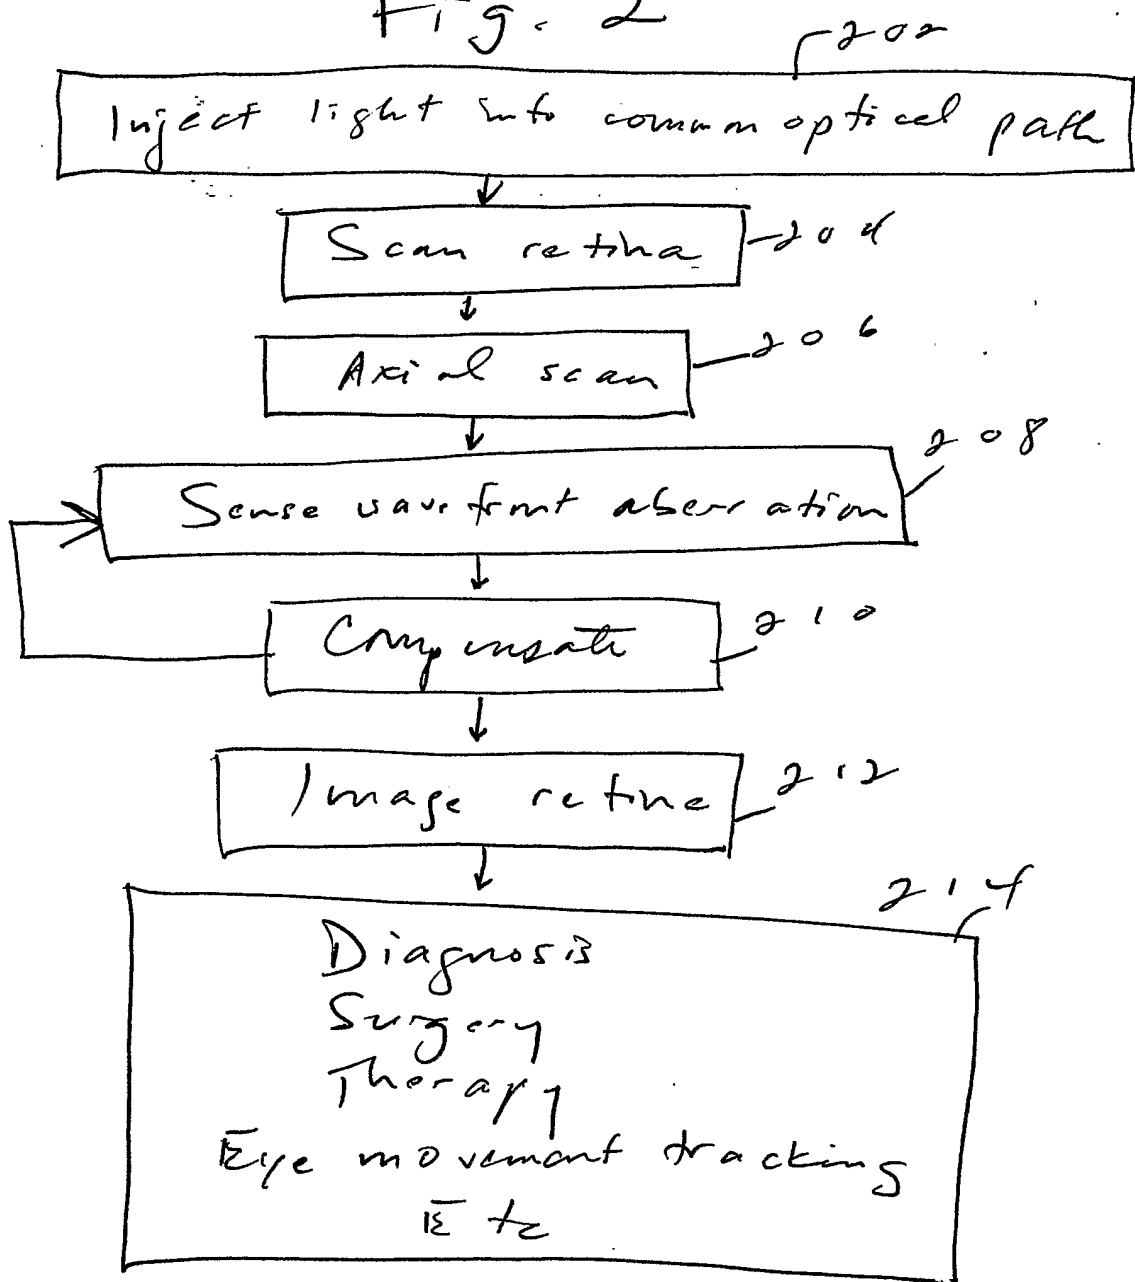 Fig. 2
202
Inject light into common optical path
Scan retina
204
Axial scan
206
208
Sense wavefront aberration
210
Compensate
212
Image retina
214
Diagnosis
Surgery
Therapy
Eye movement tracking
Etc